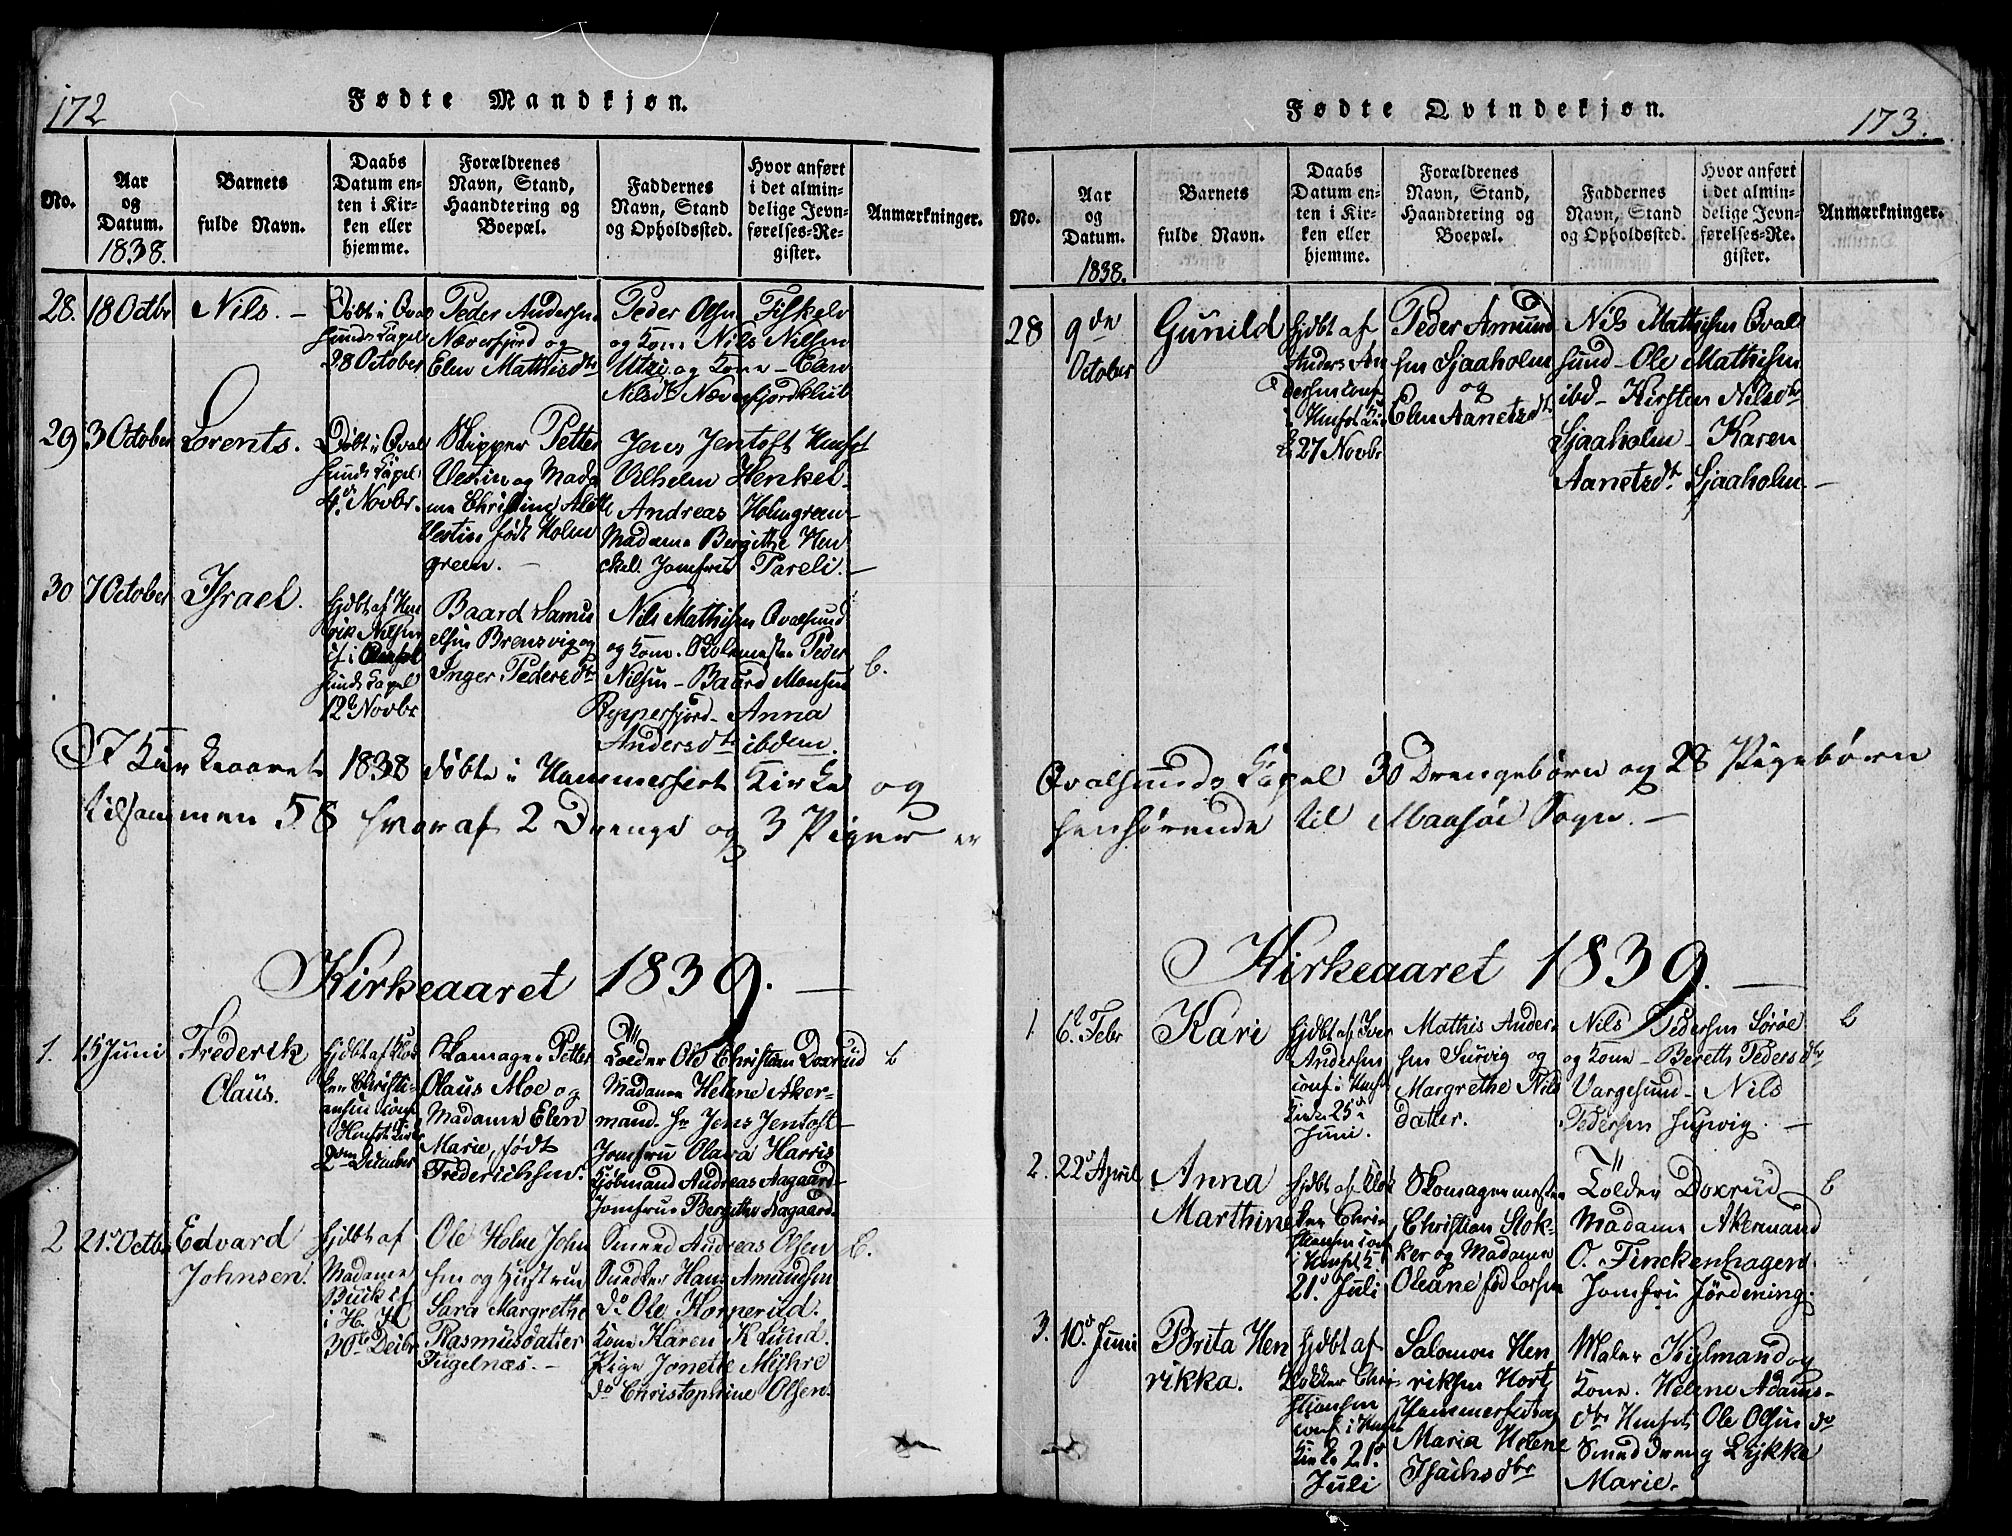 172
Fødte Mandkjøn.
No.
Aar
og
Datum.
1838.
Barnets
fulde Navn.
Daabs
Datum en-
ten i Kir-
ken eller
hjemme.
Forældrenes
Navn, Stand,
Haandtering og
Boepæl.
Faddernes
Navn, Stand
og Opholdssted.
Hvor anført
i det almin-
delige Jevn-
førelses-Re-
gister.
Anmærkninger.
28.
18 Octbr
Nils. –
Døbt i Qval
sunds Capel
28 October
Peder Andersen
Næverfjord og
Elen Mathisdtr
Peder Olsen Fiskelv
og Kone Nils Nilsen
og Kone – Elen
Nilsdtr Næverfjordklub
29
3 October
Lorents.
Døbt i Qval
sunds Capel
4. Novbr.
Skipper Petter
Vestin og Mada
me Christine Alette
Vestin født Holm
green. –
Jens Jentoft Hmfst
Vilhelm Henkel –
Andreas Holmgreen –
Madame Bergithe Hen
ckel. Jomfru Pareli. –
30
7 October
Israel.
hjdbt af Hen
rik Nilsen
sunds Capel
12 Novbr
Baard Samu
elsen Brensvig og
Inger Pedersdtr
Nils Mathisen Qvalsund
og Kone. Skolemester Peder
Nilsen – Baard Monsen
Repperfjord – Anna
Andersdtr ibdem.
b.
I Kirkeaaret 1838 døbte i Hammerfest Kirke og
tilsammen 58 hvoraf 2 Drenge og 3 Piger er
Kirkeaaret 1839. –
1.
15 Juni
Frederik
Claus.
hjdbt af Klok
ker Christi-
ansen conf
i Hmfst Kirke
2den December
Skomager Petter
Olaus Moe og
Madame Elen
Marie, født
Frederichsen.
Tolder Ole Christian Doxrud
Madame Helene Aker-
mand. Hr Jens Jentoft –
Jomfru Olava Harris
Kjøbmand Andreas Aagaard –
Jomfrue Bergithe Aagaard –
b
2
21 Octbr
Edvard
Johnsen.
hjdbt af
Madame
Buck
i H.
30te Decbr
Ole Holm John
sen og Hustrue
Sara Margrethe
Rasmusdatter
Fugelnæs. –
Smed Andreas Olsen
Snedker Hans Amundsen
do Ole Korperud.
Kone Karen Klund.
Pige Jonette Myhre
do Christophine Olsen.
b.
173.
Fødte Qvindekjøn.
No.
Aar
og
Datum.
1838.
Barnets
fulde Navn.
Daabs
Datum en-
ten i Kir-
ken eller
hjemme.
Forældrenes
Navn, Stand,
Haandtering og
Boepæl.
Faddernes
Navn, Stand
og Opholdssted.
Hvor anført
i det almin-
delige Jevn-
førelses-Re-
gister.
Anmærkninger.
28
9de
October
Gunild
hjdbt af
Anders An
dersen conf
i Hmfst Kir
ke 27 Novbr
Peder Amund
sen Sjaaholm
og
Elen Aanetsdtr
Nils Mathisen Qval
sund – Ole Mathisen
ibd – Kirsten Nilsdtr
Sjaaholm – Karen
Aanetsdtr Sjaaholm. –
Qvalsunds Capel 30 Drengebørn og 28 Pigebørn
henhørende til Maasøe Sogn. –
Kirkeaaret 1839. –
1
6. Febr
Kari
hjdbt af Iver
Andersen
conf i Hmfst
Kirke 25
Juni.
Mathis Ander
sen Survig og
Margrethe Nils
datter.
Nils Pedersen Sørøe
og Kone – Bereth Pedersdtr
Vargesund – Nils
Pedersen –
b
2.
22 April
Anna
Marthine
hjdbt af Klok
ker Chri-
stiansen conf
i Hmfst K.
21. Juli
Skomagermester
Christian Slok-
ker og Madame
Oleane fød Larsen
Tolder Doxrud
Madame Akermand
O. Finckenhagen.
Jomfru Jördening.
b
3.
10. Juni
Brita Hen
rikka.
hjdbt af
Klokker Chri-
stiansen
conf i Hmfst
Kirke 21.
Juli
Salomon Hen
riksen Hort
Hammerfest og
Maria Helene
Isachsdtr
Maler Kihlmand og
Kone. Helene Adams-
dtr Hmfst Ole Olsen do
Smeddreng Lykke
Marie.